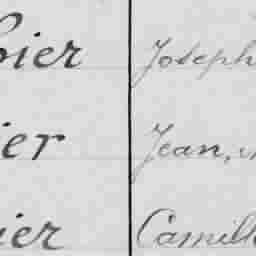 oier Joseph
ier Jean,
ier Camill